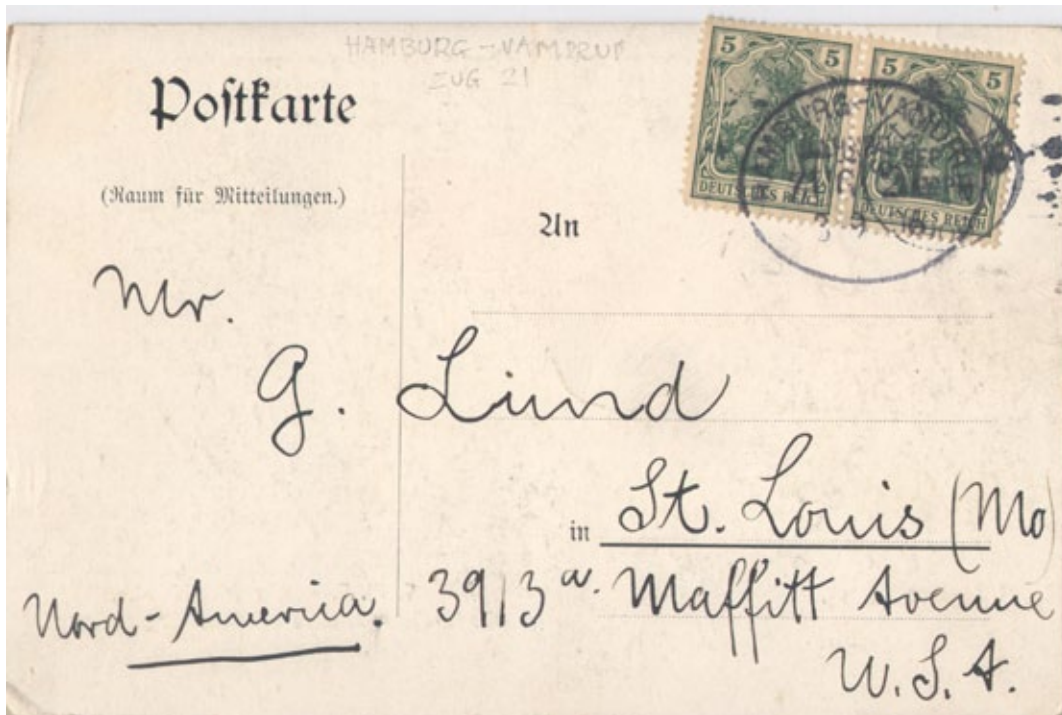 HAMBURG-VAMDRUP
ZUG 21
Postkarte
(Raum für Mitteilungen.)
An
5 5 5 5
DEUTSCHES REICH DEUTSCHES REICH
HAMBURG-VAMDRUP
Mr.
G. Lund
in St. Louis (Mo)
Nord-America. 3913 a. Maffitt Avenue
U.S.A.